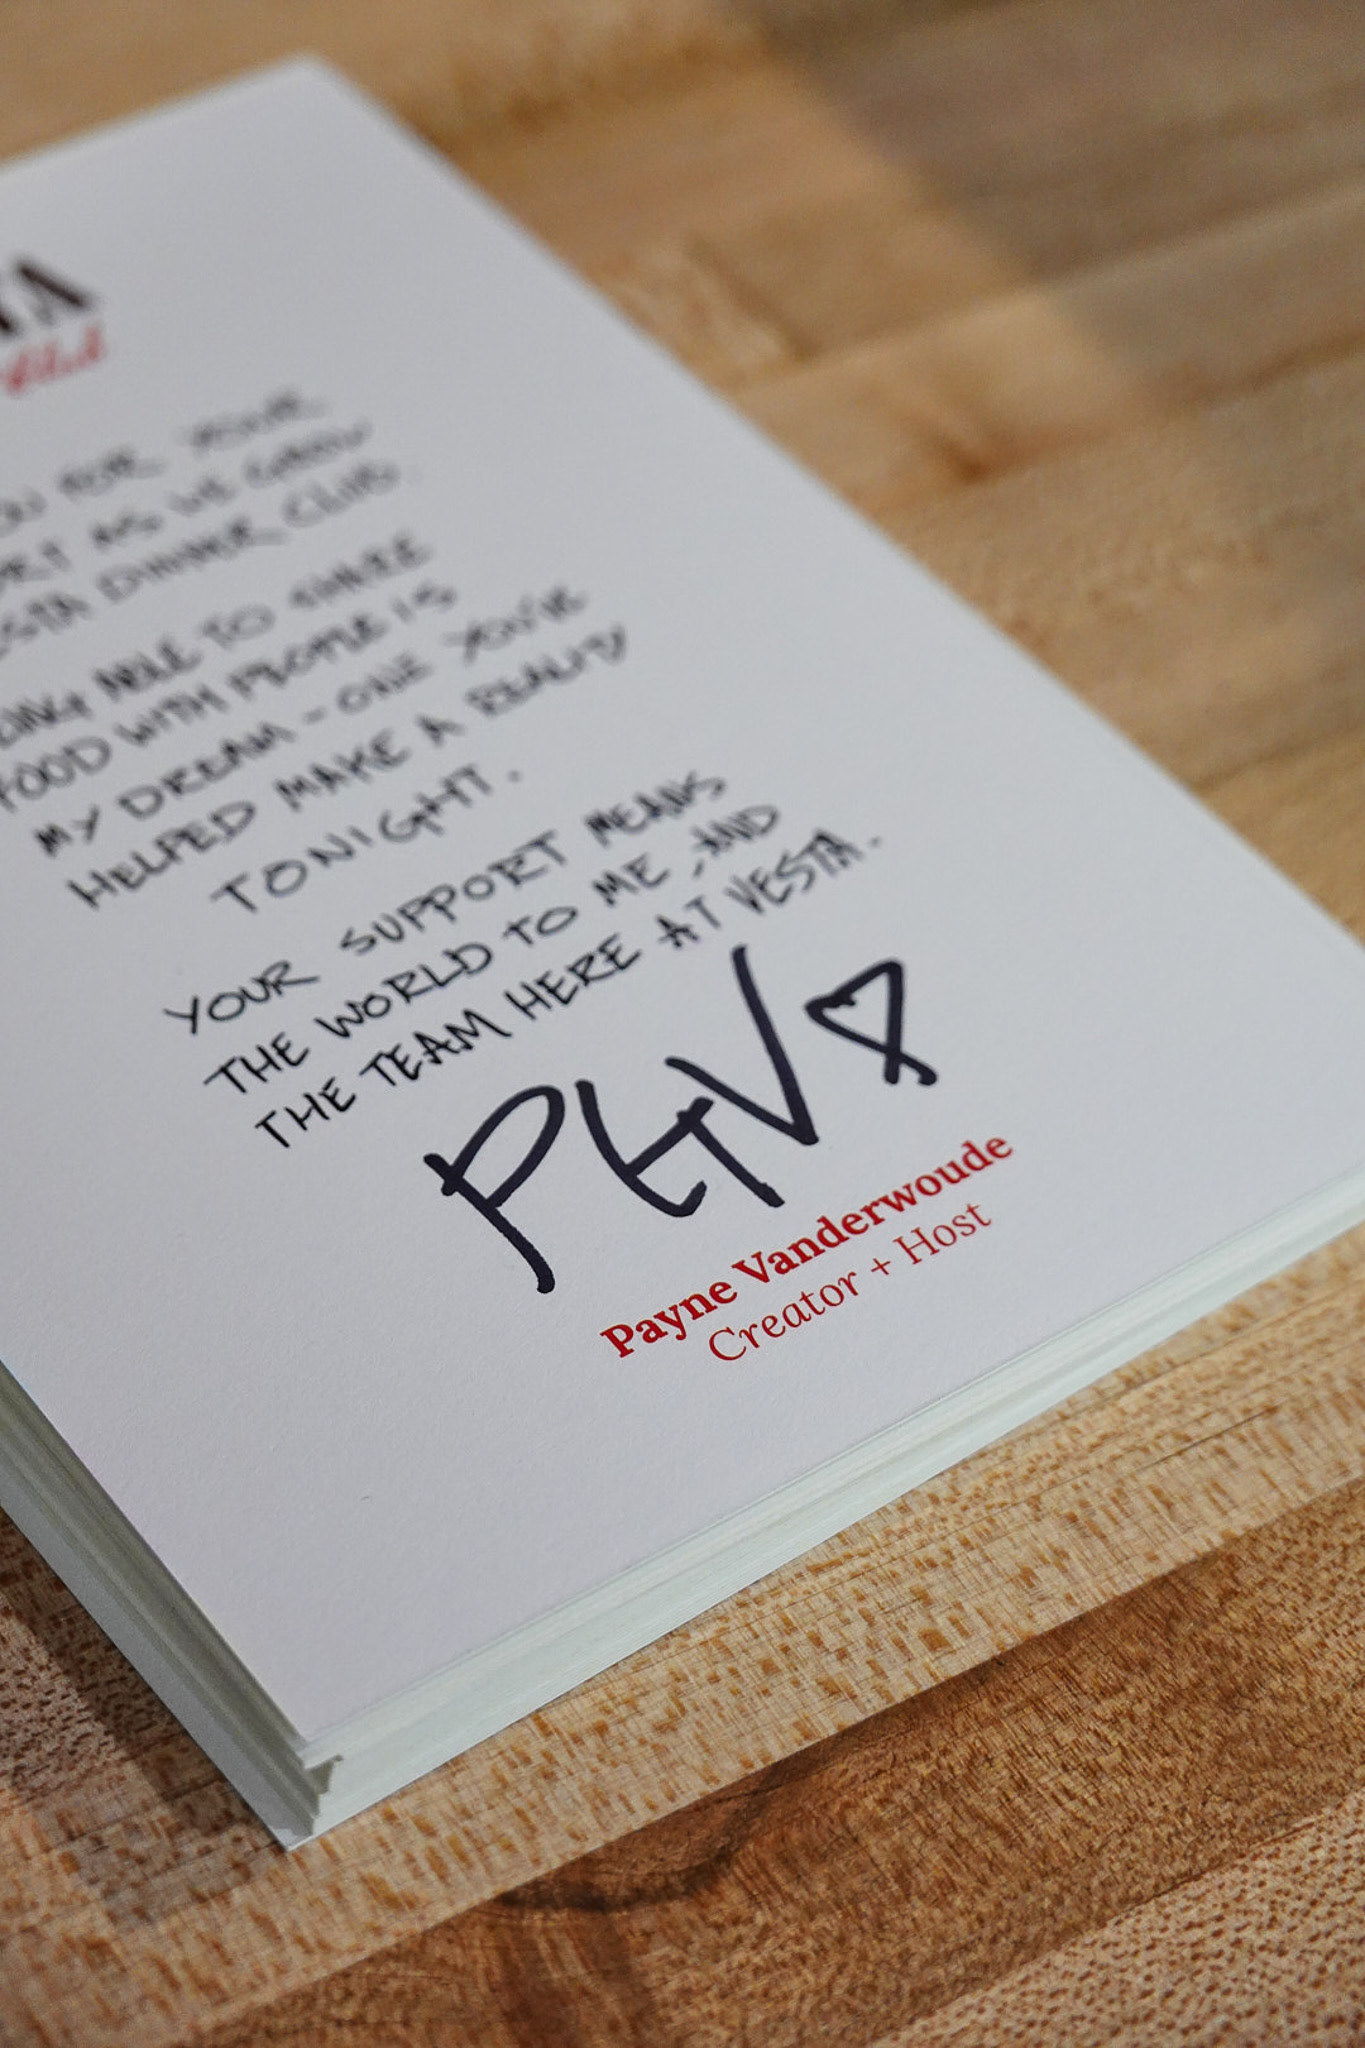 TA
Club
OU FOR YOUR
ORT AS WE GROW
ESTA DINNER CLUB.
EING ABLE TO SHARE
FOOD WITH PEOPLE IS
MY DREAM - ONE YOU'VE
HELPED MAKE A REALITY
TONIGHT.
YOUR SUPPORT MEANS
THE WORLD TO ME, AND
THE TEAM HERE AT VESTA.
Payne Vanderwoude
Creator + Host